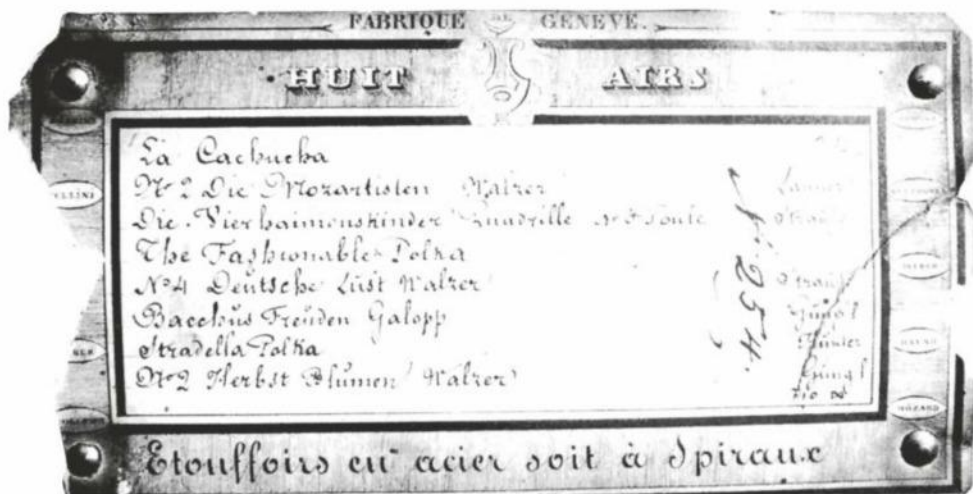 FABRIQUE DE GENÈVE.
HUIT AIRS
La Cachucha
No 2 Die Mozartisten Walzer Lanner
Die Vier haimonskinder Quadrille No 5 Poule Strauss
The Fashionable Polka
No 4 Deutsche Lust Walzer Strauss
Bacchus Freuden Galopp Gungl
Stradella Polka
No 2 Herbst Blumen Walzer Gungl
2534.
BELLINI
HAYDN
MOZARD
Etouffoirs en acier soit à Spiraux